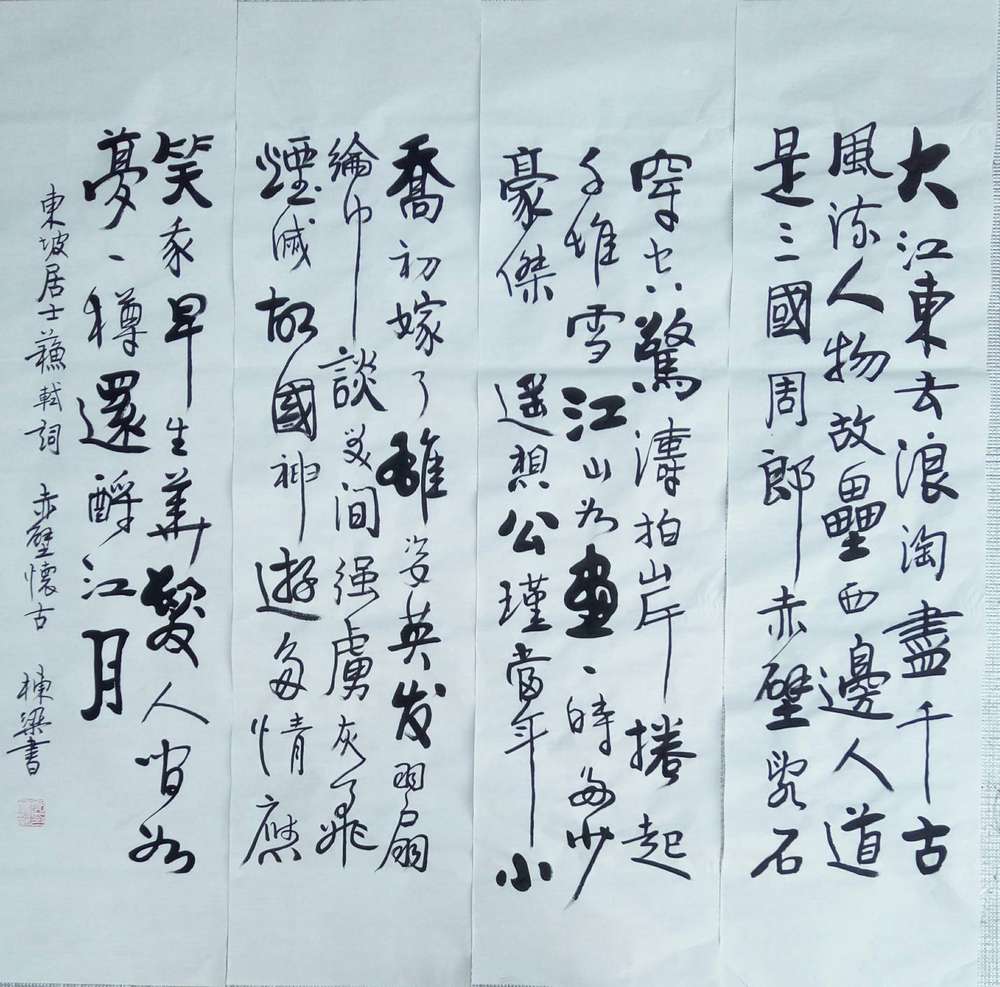 大江東去浪淘盡千古
風流人物故壘西邊人道
是三國周郎赤壁乱石
穿空驚濤拍岸捲起
千堆雪江山如畫一時多少
豪傑遥想公瑾當年小
喬初嫁了雄姿英发羽扇
綸巾談笑间强虜灰飛
煙滅故國神遊多情應
笑我早生華髮人间如
夢一樽還酹江月
東坡居士蘇軾詞 赤壁懷古 棟梁書